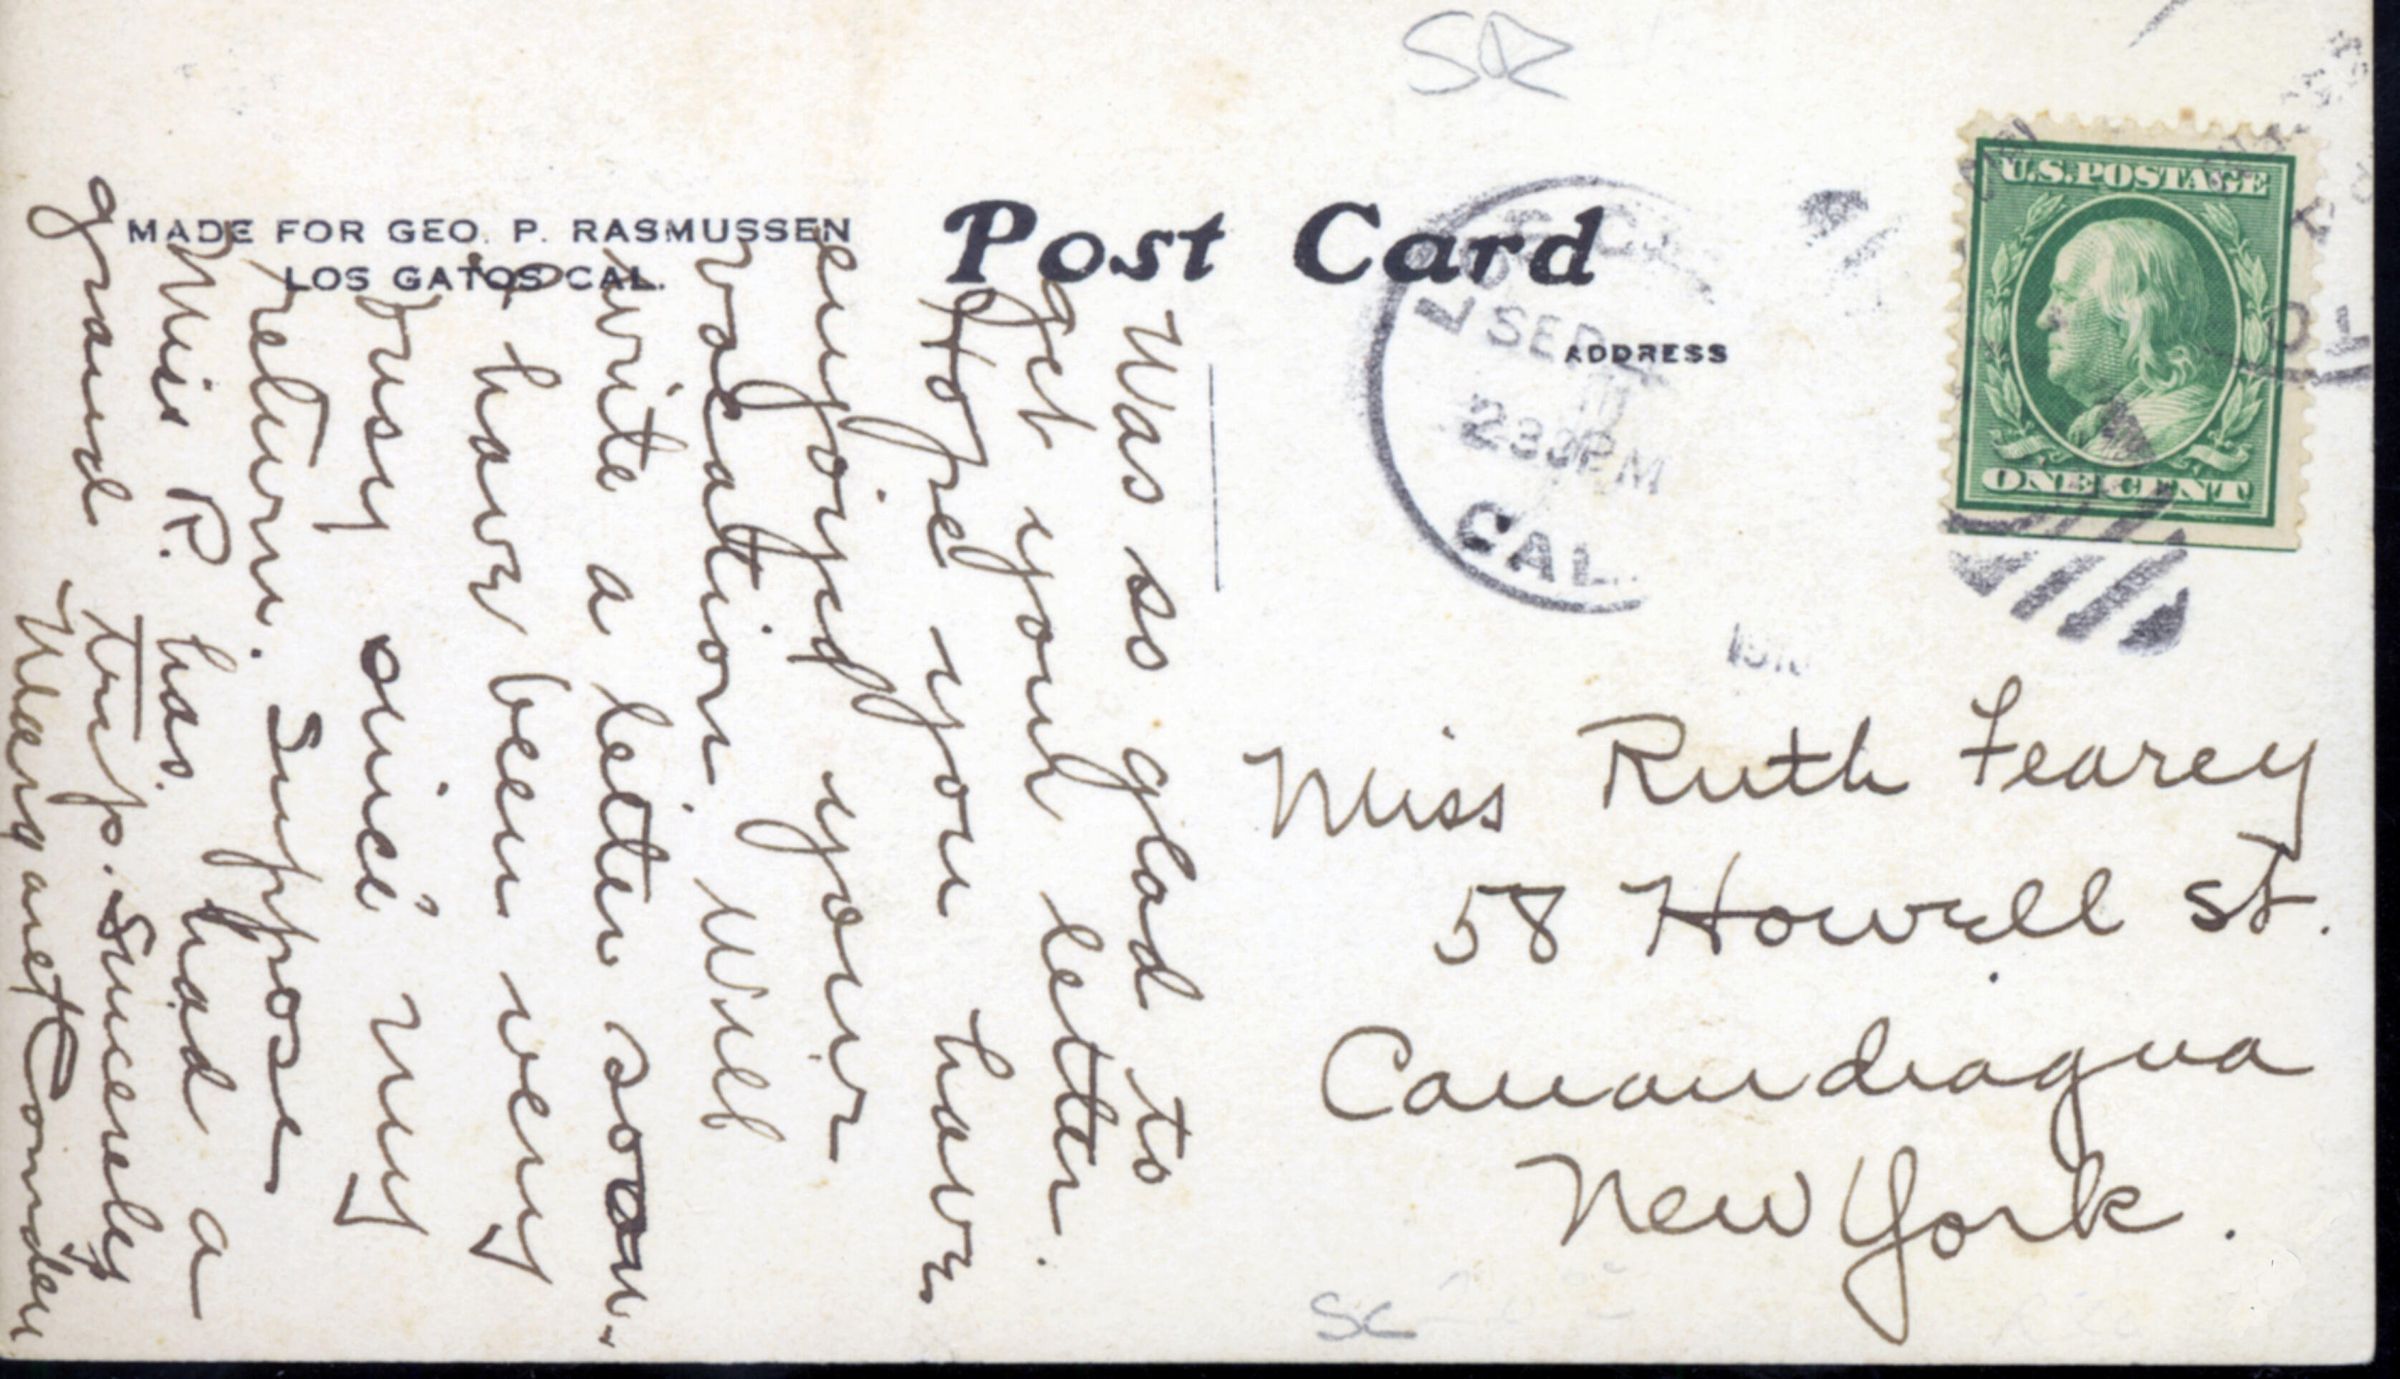 MADE FOR GEO. P. RASMUSSEN
LOS GATOS CAL.
Post Card
ADDRESS
SEP
230PM
CAL.
U.S.POSTAGE
ONE CENT
Was so glad to
get your letter.
Hope you have
enjoyed your
vacation. Will
write a letter soon.
I have been very
busy since my
return. Suppose
Miss R. has had a
grand trip. Sincerely
Margaret
Miss Ruth Fearey
58 Howell St.
Canandiagua
New York.
SC